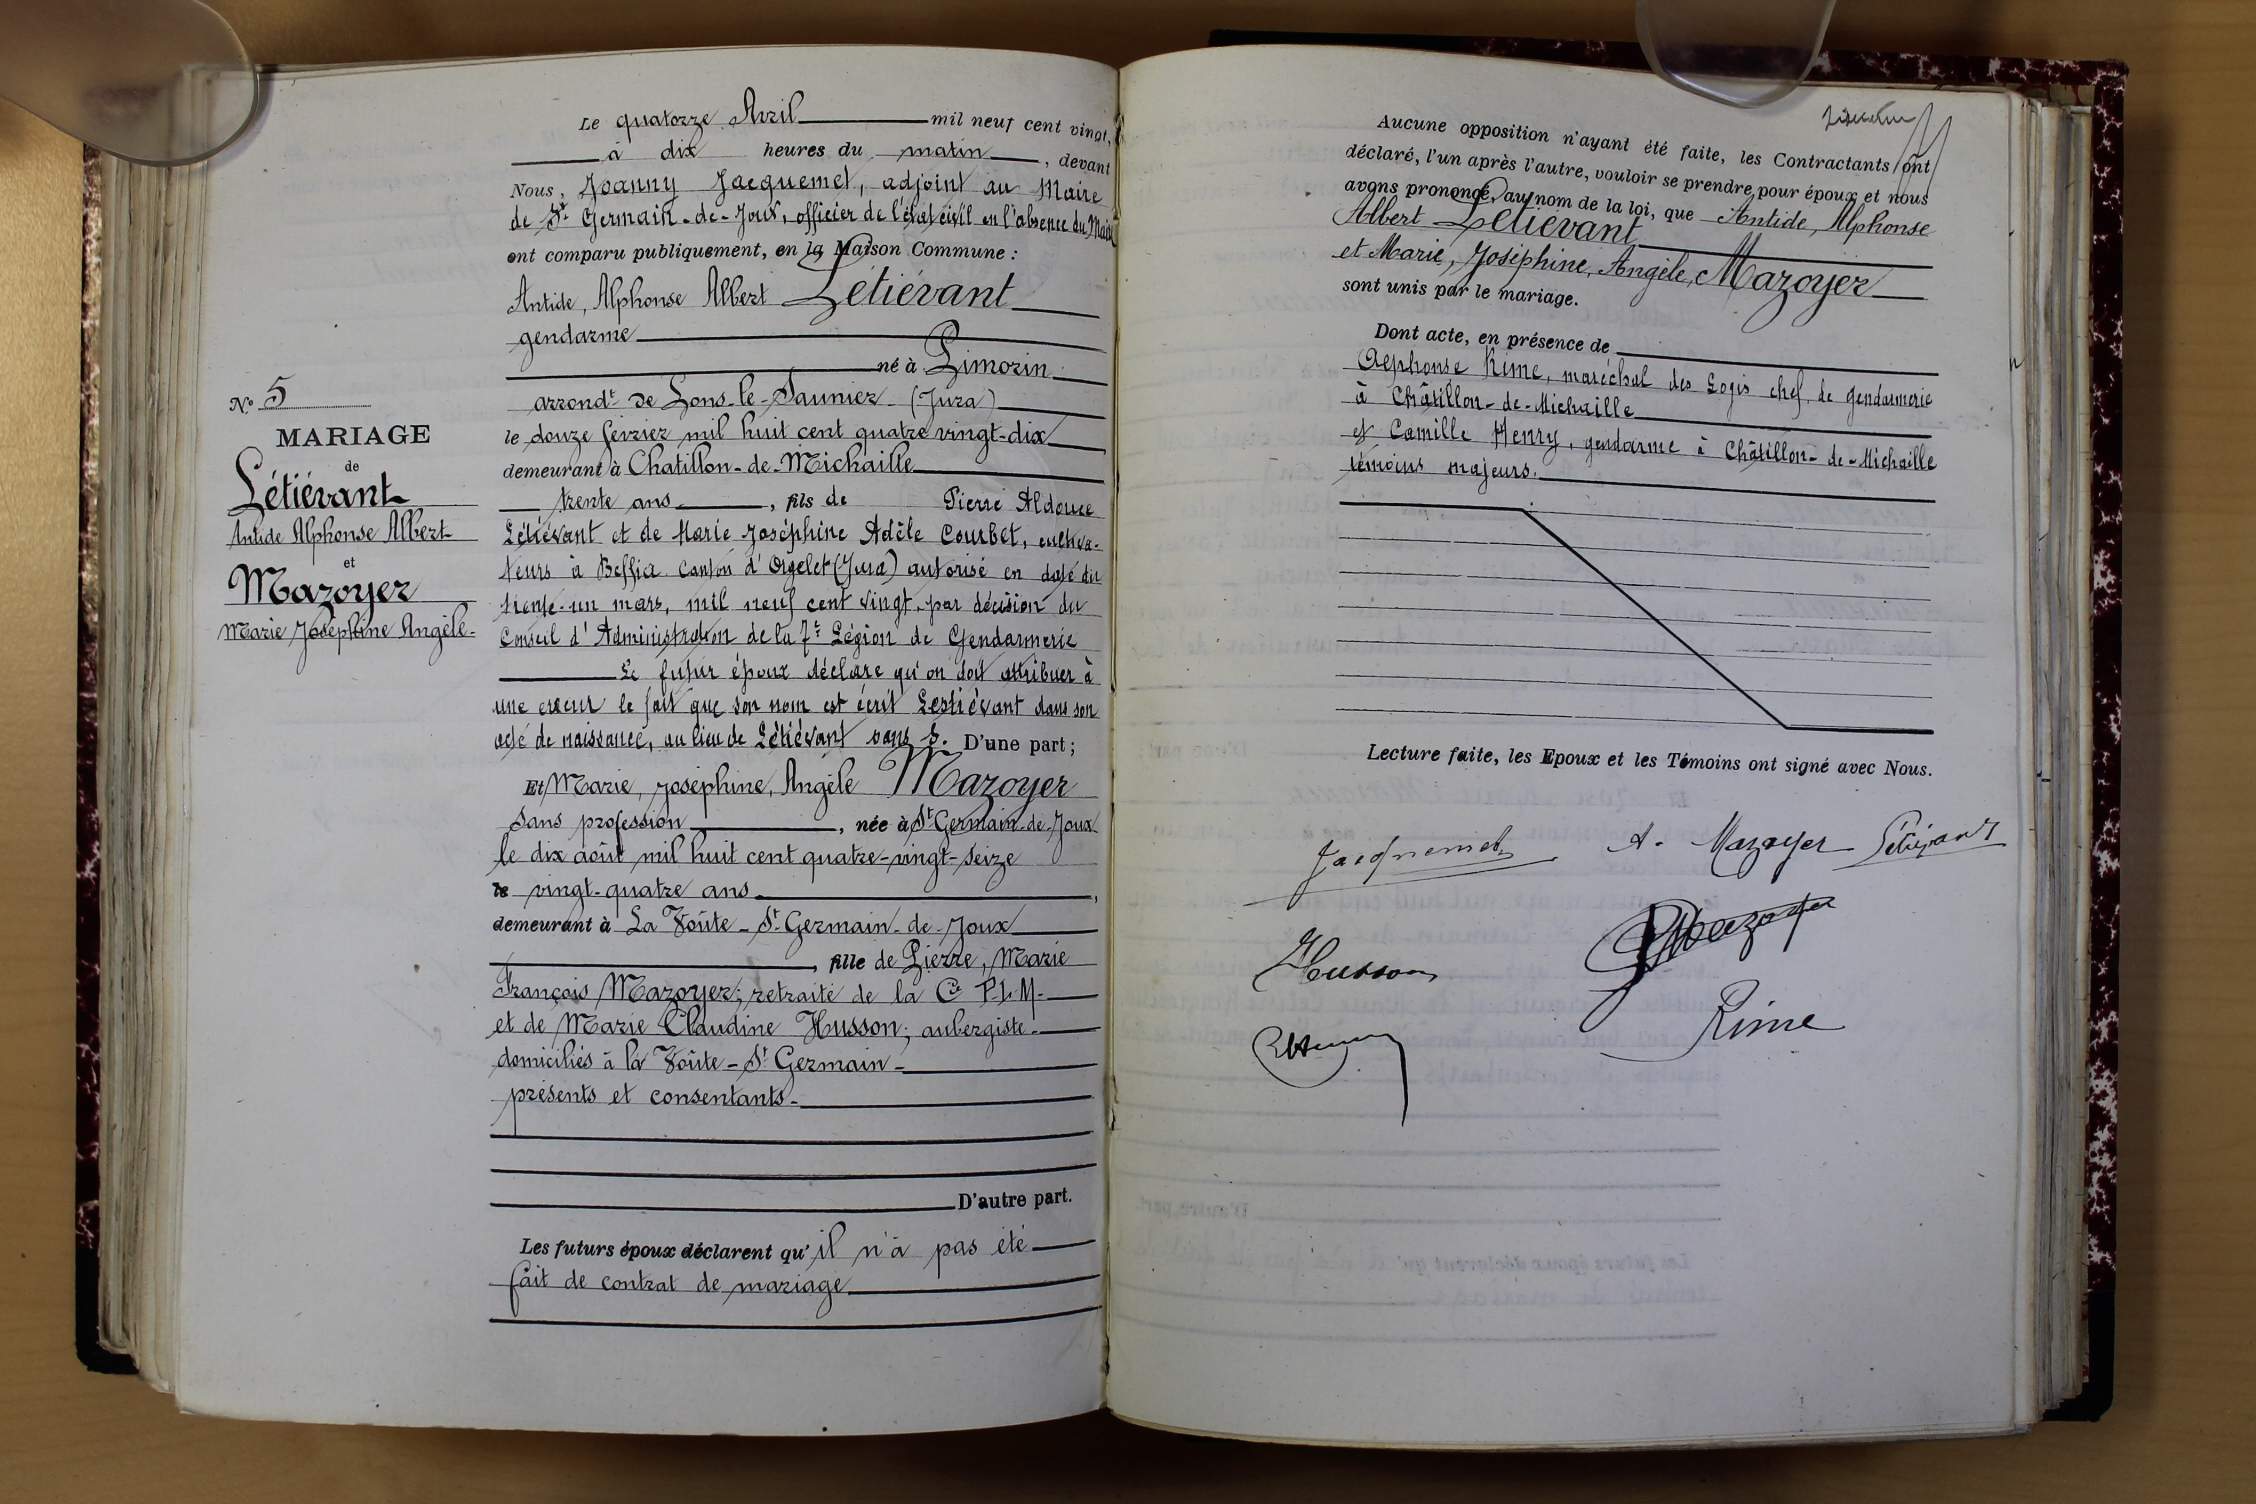 Le quatorze Avril mil neuf cent vingt,
à dix heures du matin, devant
Nous, Joanny Jacquemet, adjoint au Maire
de St Germain-de-Joux, officier de l'état civil en l'absence du Maire
ont comparu publiquement, en la Maison Commune :
Antide, Alphonse Albert Létiévant
gendarme
né à Pimorin
arrondt de Lons-le-Saunier (Jura)
le douze février mil huit cent quatre vingt-dix
demeurant à Chatillon-de-Michaille
trente ans, fils de Pierre Aldouce
Létiévant et de Marie Joséphine Adèle Courbet, cultiva-
teurs à Beffia canton d'Orgelet (Jura) autorisé en date du
trente-un mars, mil neuf cent vingt, par décision du
Conseil d'Administration de la 7e Légion de Gendarmerie
Le futur époux déclare qu'on doit attribuer à
une erreur le fait que son nom est écrit Lestiévant dans son
acte de naissance, au lieu de Létiévant sans s. D'une part ;
Et Marie, Joséphine, Angèle Mazoyer
sans profession, née à St Germain-de-Joux
le dix août mil huit cent quatre-vingt-seize
de vingt-quatre ans,
demeurant à La Voûte-St Germain-de-Joux
, fille de Pierre, Marie
François Mazoyer; retraité de la Cie P.L.M.
et de Marie Claudine Husson; aubergiste
domiciliés à la Voûte-St Germain-
présents et consentants-
D'autre part.
Les futurs époux déclarent qu'il n'a pas été
fait de contrat de mariage
No 5
MARIAGE
de
Létiévant
Antide Alphonse Albert
et
Mazoyer
Marie Joséphine Angèle-
Aucune opposition n'ayant été faite, les Contractants ont
déclaré, l'un après l'autre, vouloir se prendre pour époux et nous
avons prononcé, au nom de la loi, que Antide, Alphonse
Albert Létiévant
et Marie, Joséphine, Angèle, Mazoyer
sont unis par le mariage.
Dont acte, en présence de
Alphonse Rime, maréchal des Logis chef, de gendarmerie
à Châtillon-de-Michaille
et Camille Henry, gendarme à Châtillon-de-Michaille
témoins majeurs.
Lecture faite, les Epoux et les Témoins ont signé avec Nous.
Jacquemet A. Mazoyer Létiévant
Husson Mazoyer
Rime
Henry